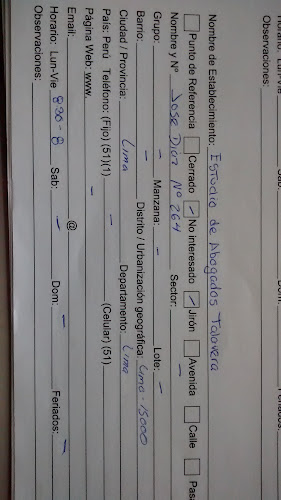 Horario: Lun-Vie
Observaciones:
Nombre de Establecimiento: Estudio de Abogados Talavera
Punto de Referencia Cerrado No interesado Jirón Avenida Calle
Nombre y Nº Jose Diaz Nº 264 Sector: -
Grupo: - Manzana: - Lote: -
Barrio: - Distrito / Urbanización geográfica: Lima-15000
Ciudad / Provincia: Lima Departamento: Lima
País: Perú Teléfono: (Fijo) (51)(1) - (Celular) (51)
Página Web: www. -
Email: @
Horario: Lun-Vie 830-8 Sab: - Dom: - Feriados: -
Observaciones: